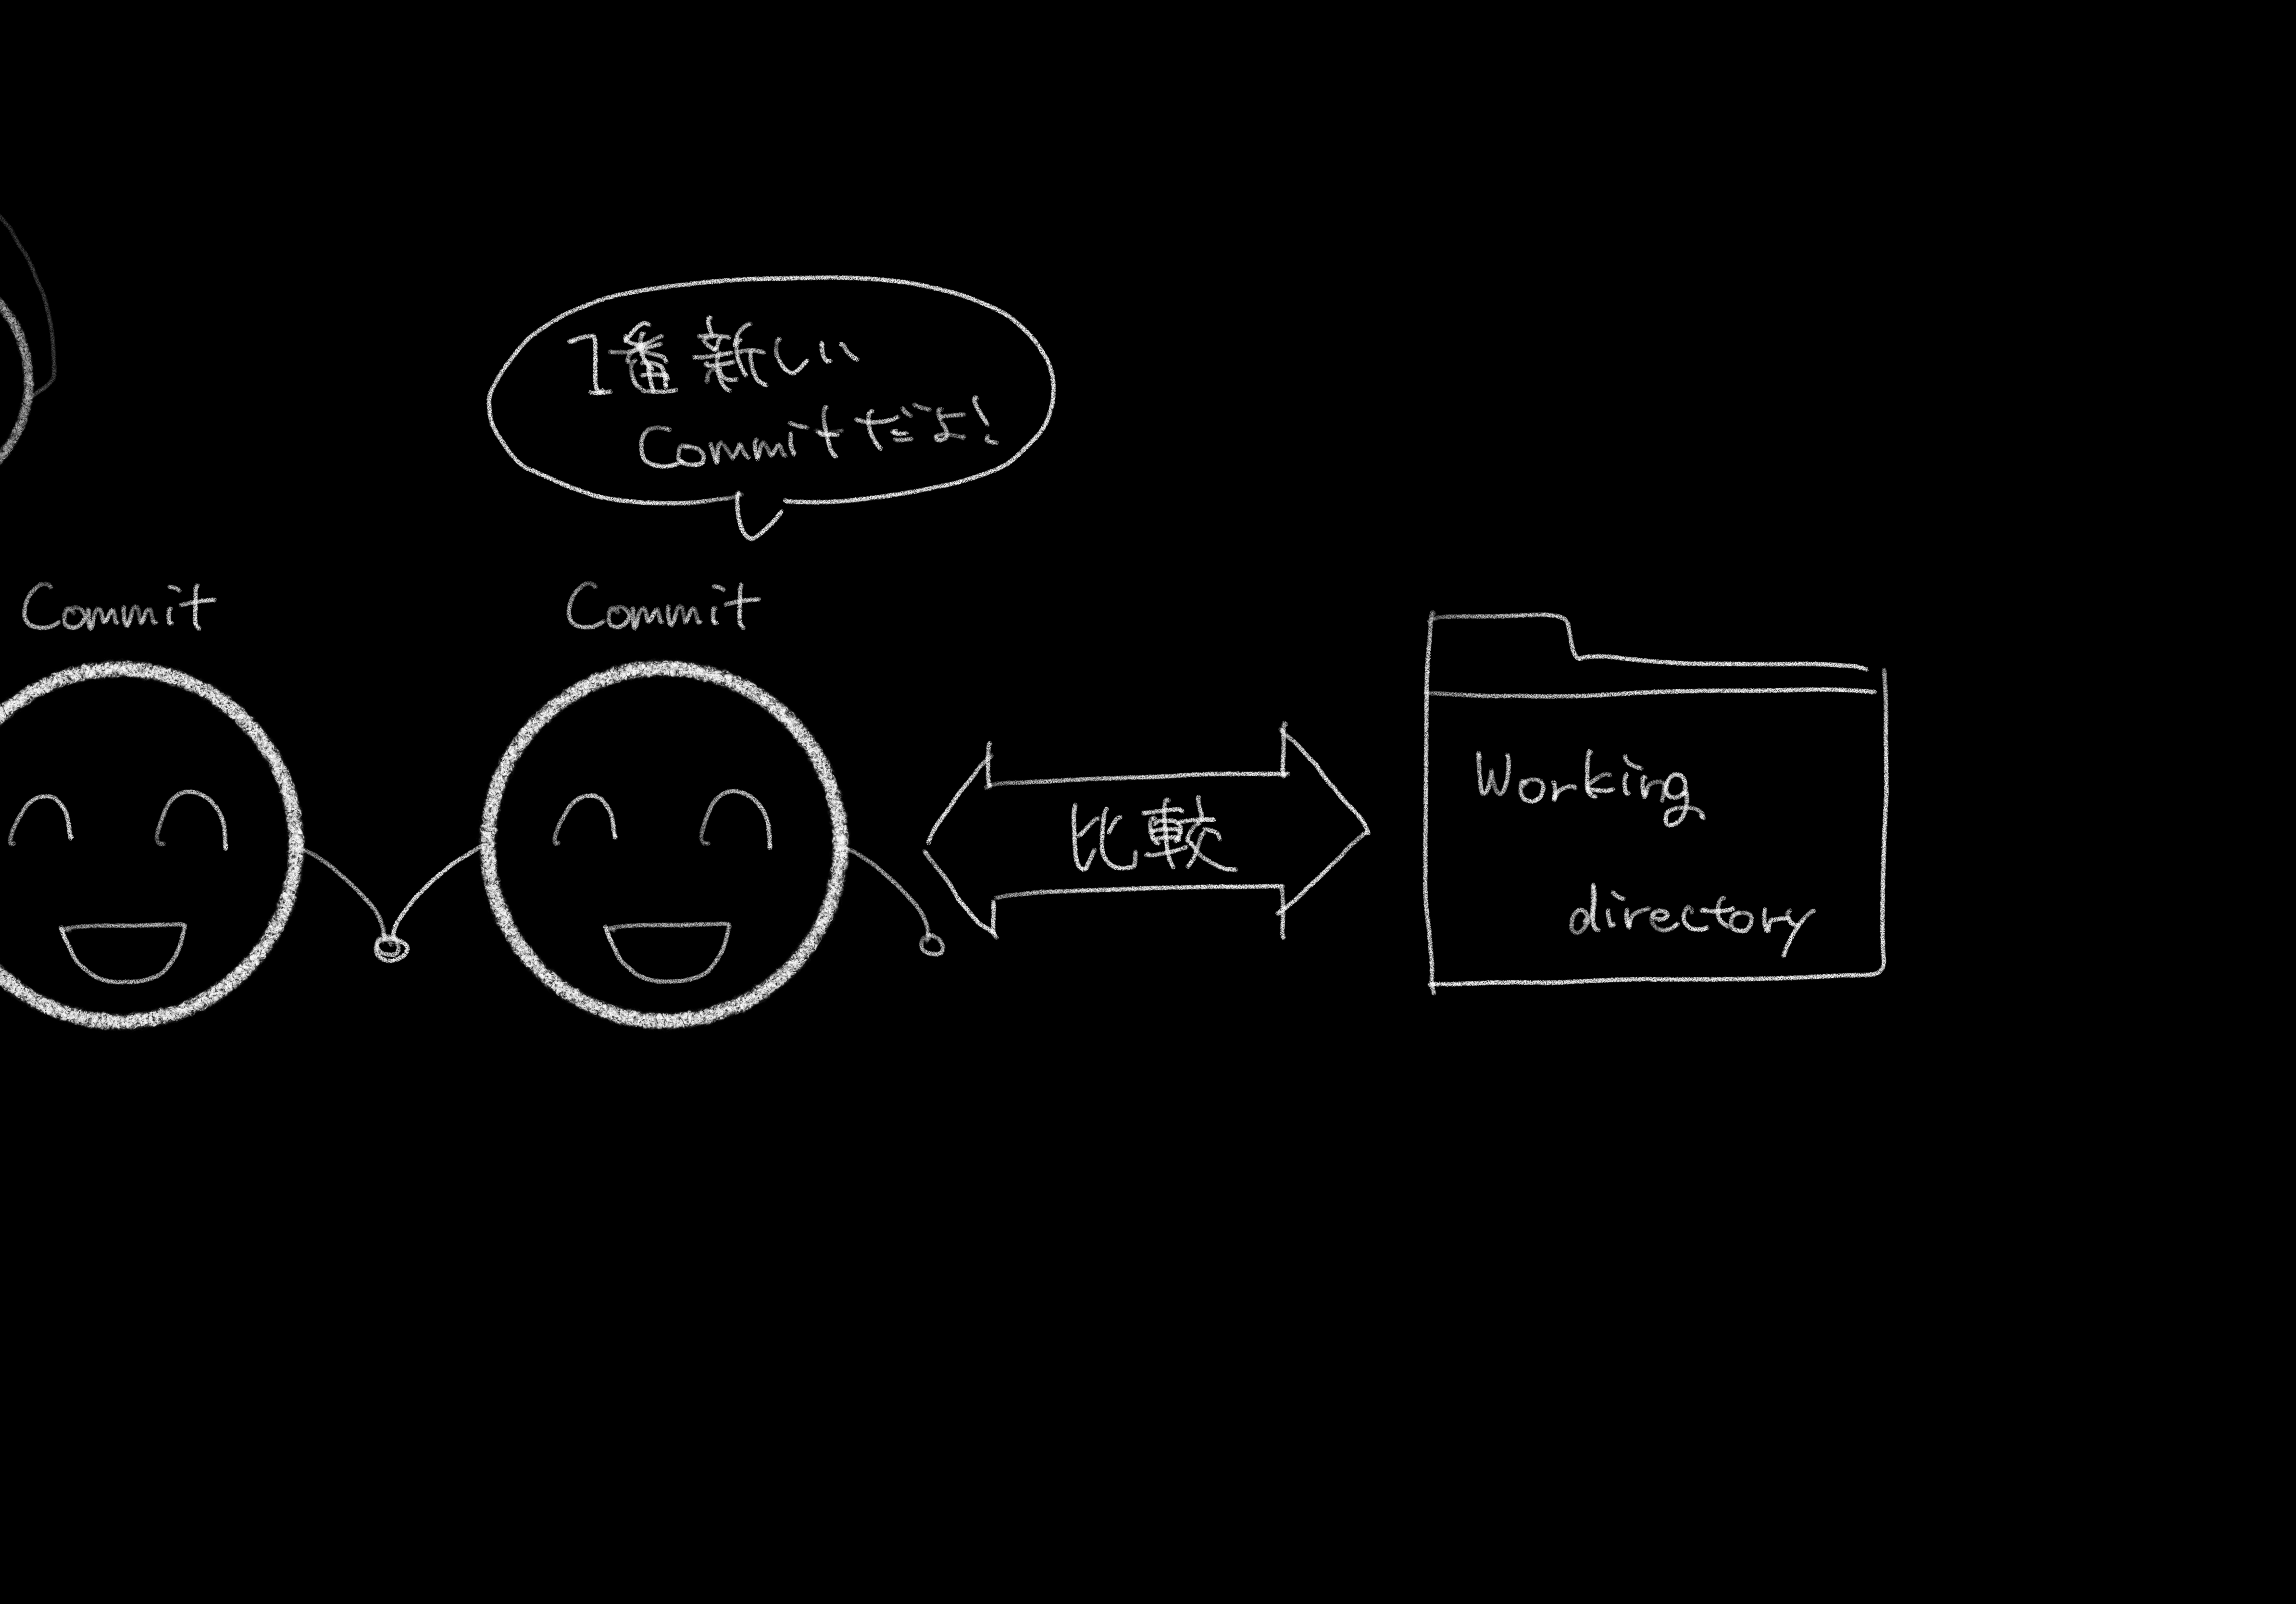 1番新しい
Commitだよ!
Commit
Commit
比較
Working
directory